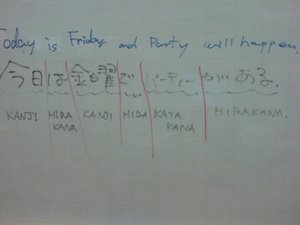 Today is Friday and Party will happen.
今日は金曜で、パーティーがある。
KANJI HIRA KANA KANJI HIRA KATA KANA HIRAKANA.